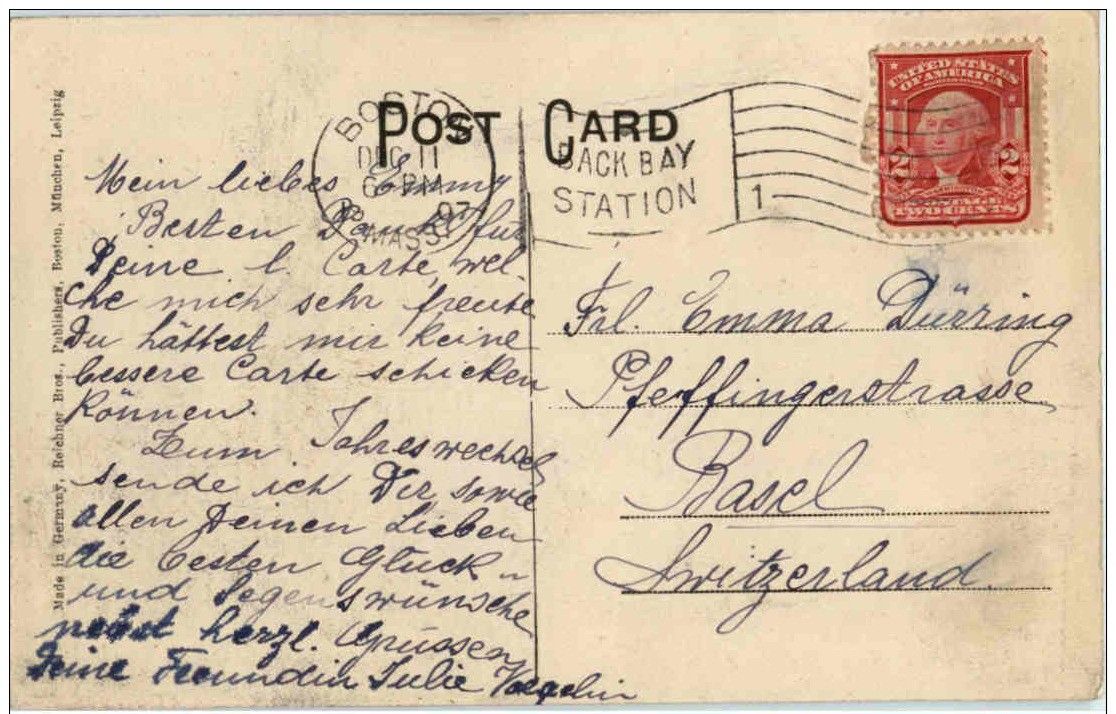 POST CARD
BOSTON
DEC 11
6 PM
07
MASS.
BACK BAY
STATION
1
UNITED STATES
OF AMERICA
2 2
TWO CENTS
Made in Germany, Reichner Bros., Publishers, Boston, München, Leipzig
Mein liebes Emmy
Besten Dank für
Deine l. Carte, wel-
che mich sehr freute
Du hättest mir keine
bessere Carte schicken
können.
Zum Jahreswechsel
sende ich Dir sowie
allen Deinen Lieben
die besten Glück-
und Segenswünsche
nebst herzl. Grüssen
Deine Freundin Julie
Frl. Emma Dürring
Pfeffingerstrasse
Basel
Switzerland.